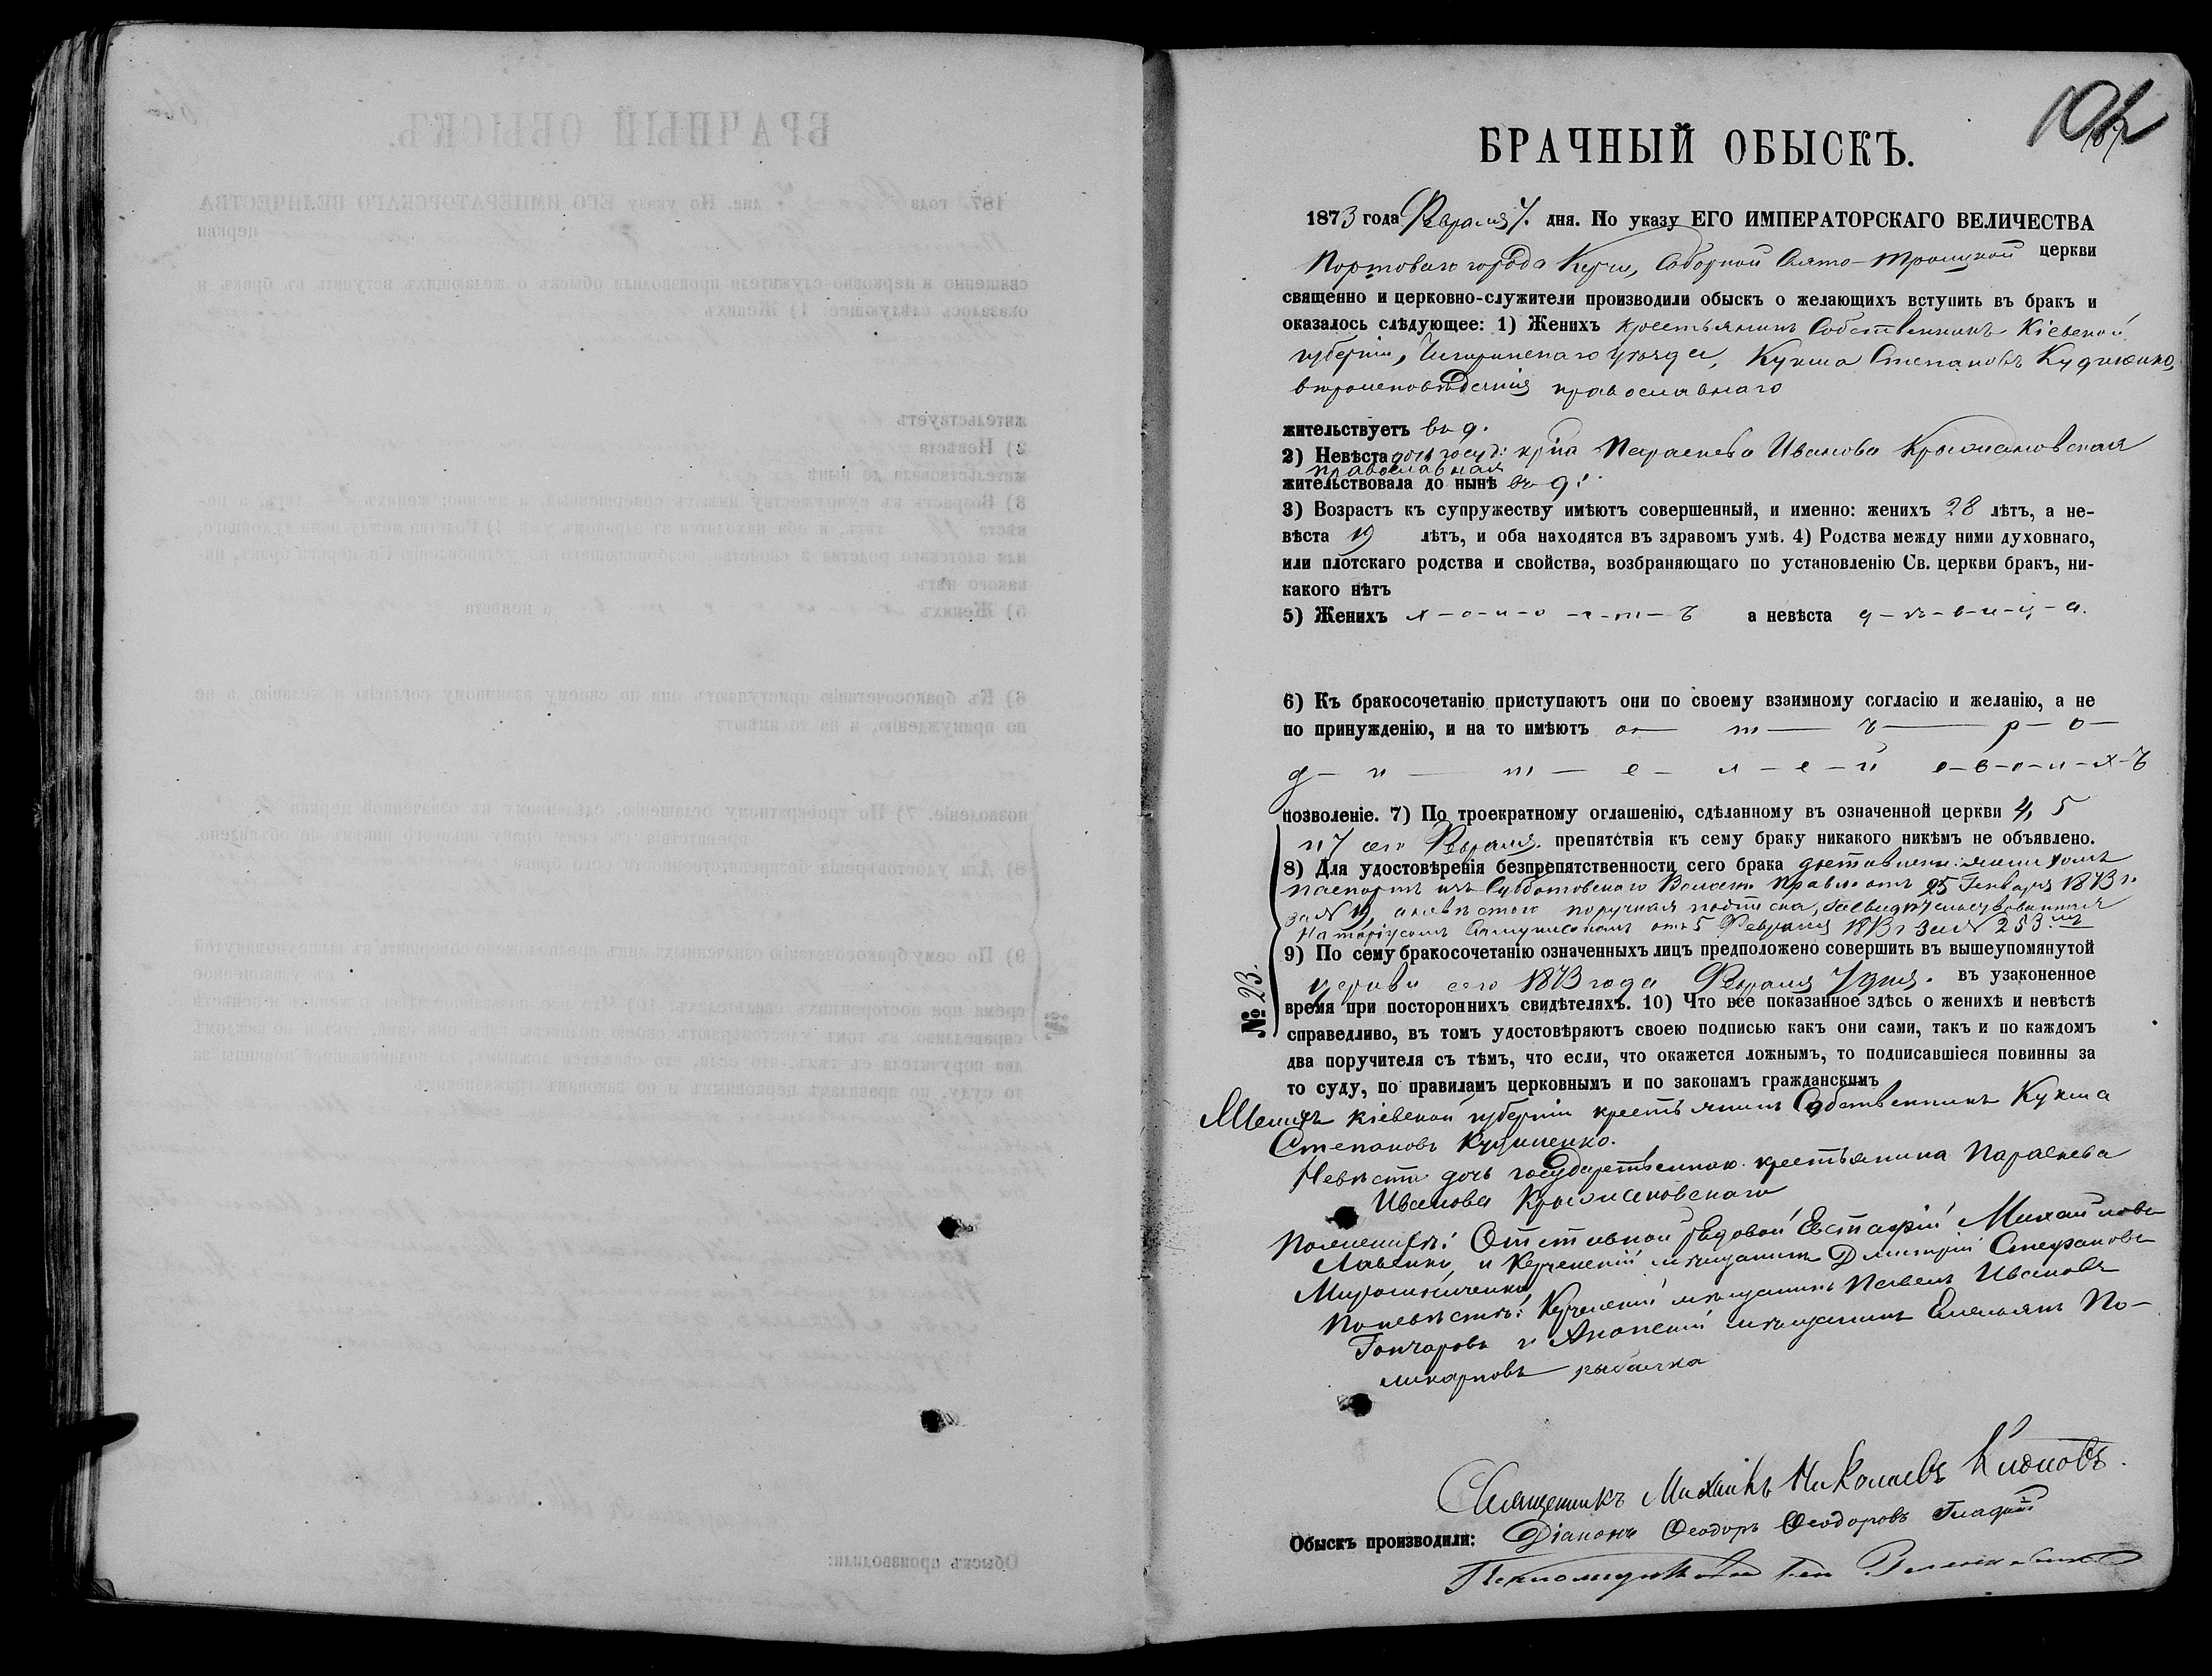 102
БРАЧНЫЙ ОБЫСКЪ.
1873 года Февраля 7. дня. По указу ЕГО ИМПЕРАТОРСКАГО ВЕЛИЧЕСТВА
Портоваго города Керчи, Соборной Свято-Троицкой церкви
священно и церковно-служители производили обыскъ о желающихъ вступить въ бракъ и
оказалось слѣдующее: 1) Женихъ крестьянинъ Собственникъ Кіевской
губерніи, Чигиринскаго уѣзда, Кузма Степановъ
вѣроисповѣданія православнаго
жительствуетъ въ д.
2) Невѣста дочь госуд: кр-на Параскева Ивановa Крыжановская
православная
жительствовала до нынѣ въ д:
3) Возрастъ къ супружеству имѣютъ совершенный, и именно: женихъ 28 лѣтъ, а не-
вѣста 19 лѣтъ, и оба находятся въ здравомъ умѣ. 4) Родства между ними духовнаго,
или плотскаго родства и свойства, возбраняющаго по установленію Св. церкви бракъ, ни-
какого нѣтъ
5) Женихъ х-о-л-о-с-т-ъ а невѣста д-ѣ-в-и-ц-а.
6) Къ бракосочетанію приступаютъ они по своему взаимному согласію и желанію, а не
по принужденію, и на то имѣютъ о— т— ъ— р— о—
д— и— т— е— л— е— й с-в-о-и-х-ъ
позволеніе. 7) По троекратному оглашенію, сдѣланному въ означенной церкви 4, 5
и 7 сего Февраля. препятствія къ сему браку никакого никѣмъ не объявлено.
8) Для удостовѣренія безпрепятственности сего брака доставлены: женихомъ
паспортъ изъ Субботовскаго Волост. Правл. отъ 25 Генваря 1873 г.
за № 19, а невѣстою поручная подписка, засвидѣтельствованная
Нотаріусомъ отъ 5 Февраля 1873 г. за № 253.мъ
9) По сему бракосочетанію означенныхъ лицъ предположено совершить въ вышеупомянутой
церкви сего 1873 года Февраля 7 дня. въ узаконенное
№ 23.
время при постороннихъ свидѣтеляхъ. 10) Что все показанное здѣсь о женихѣ и невѣстѣ
справедливо, въ томъ удостовѣряютъ своею подписью какъ они сами, такъ и по каждомъ
два поручителя съ тѣмъ, что если, что окажется ложнымъ, то подписавшіеся повинны за
то суду, по правиламъ церковнымъ и по законамъ гражданскимъ
Женихъ Кіевской губерніи крестьянинъ Собственникъ Кузма
Степановъ
Невѣста дочь государственнаго крестьянина Параскева
Иванова Крыжановскаго
По женихѣ: Отставной рядовой Евстафій Михайловъ
и Керченскій мѣщанинъ Дмитрій Стефановъ
Мирошниченко
По невѣстѣ: Керченскій мѣщанинъ Павелъ Ивановъ
Гончаровъ и Анапскій мѣщанинъ Емельянъ По-
ликарповъ Рыбалка
Священникъ Михаилъ Николаевъ
Обыскъ производили: Діаконъ Ѳеодоръ Ѳеодоровъ Гладкій